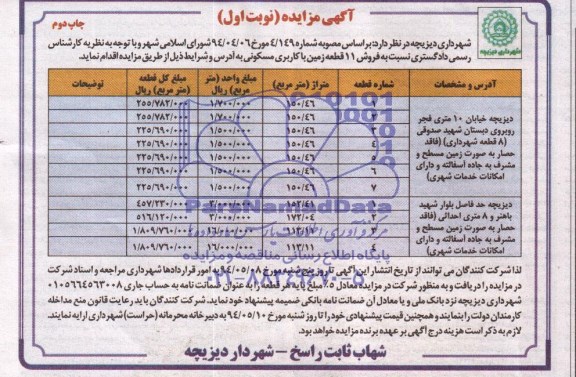 آگهی مزایده (نوبت اول)
چاپ دوم
شهرداری دیزیچه
شهرداری دیزیچه در نظر دارد: براساس مصوبه شماره ۴/۱۴۹ مورخ ۹۴/۰۴/۰۶ شورای اسلامی شهر و با توجه به نظریه کارشناس
رسمی دادگستری نسبت به فروش ۱۱ قطعه زمین با کاربری مسکونی به آدرس و شرایط ذیل از طریق مزایده اقدام نماید.
آدرس و مشخصات | شماره قطعه | متراژ (متر مربع) | مبلغ واحد (متر مربع) ریال | مبلغ کل قطعه (متر مربع) ریال | توضیحات
دیزیچه خیابان ۱۰ متری فجر
روبروی دبستان شهید صدوقی
(۸ قطعه شهرداری) (فاقد
حصار به صورت زمین مسطح و
مشرف به جاده آسفالته و دارای
امکانات خدمات شهری)
۱ | ۱۵۰/۴۶ | ۱/۷۰۰/۰۰۰ | ۲۵۵/۷۸۲/۰۰۰
۱۵۰/۴۶ | ۱/۷۰۰/۰۰۰ | ۲۵۵/۷۸۲/۰۰۰
۳ | ۱۵۰/۴۶ | ۱/۵۰۰/۰۰۰ | ۲۲۵/۶۹۰/۰۰۰
۴ | ۱۵۰/۴۶ | ۱/۵۰۰/۰۰۰ | ۲۲۵/۶۹۰/۰۰۰
۵ | ۱۵۰/۴۶ | ۱/۵۰۰/۰۰۰ | ۲۲۵/۶۹۰/۰۰۰
۶ | ۱۵۰/۴۶ | ۱/۵۰۰/۰۰۰ | ۲۲۵/۶۹۰/۰۰۰
۷ | ۱۵۰/۴۶ | ۱/۵۰۰/۰۰۰ | ۲۲۵/۶۹۰/۰۰۰
دیزیچه حد فاصل بلوار شهید
باهنر و ۸ متری احداثی (فاقد
حصار به صورت زمین مسطح و
مشرف به جاده آسفالته و دارای
امکانات خدمات شهری)
۴۵۷/۲۳۰/۰۰۰
۲ | ۱۷۲/۰۴ | ۳/۰۰۰/۰۰۰ | ۵۱۶/۱۲۰/۰۰۰
۱/۸۰۹/۷۶۰/۰۰۰
۴ | ۱۱۳/۱۱ | ۱۶/۰۰۰/۰۰۰ | ۱/۸۰۹/۷۶۰/۰۰۰
ParsNamadData
پایگاه اطلاع رسانی مناقصه و مزایده
لذا شرکت کنندگان می توانند از تاریخ انتشار این آگهی تا روز پنج شنبه مورخ ۹۴/۰۵/۰۸ به امور قراردادها شهرداری مراجعه و اسناد شرکت
در مزایده را دریافت و به منظور شرکت در مزایده معادل ۵٪ مبلغ پایه هر قطعه را به عنوان ضمانت نامه به حساب جاری ۰۱۰۵۶۶۴۵۶۳۰۰۸
شهرداری دیزیچه نزد بانک ملی و یا معادل آن ضمانت نامه بانکی ضمیمه پیشنهاد خود نماید. شرکت کنندگان باید رعایت قانون منع مداخله
کارمندان دولت را بنمایند و همچنین قیمت پیشنهادی خود را تا روز شنبه مورخ ۹۴/۰۵/۱۰ به دبیرخانه محرمانه (حراست) شهرداری ارایه نمایند.
لازم به ذکر است هزینه درج آگهی بر عهده برنده مزایده خواهد بود.
شهاب ثابت راسخ - شهردار دیزیچه